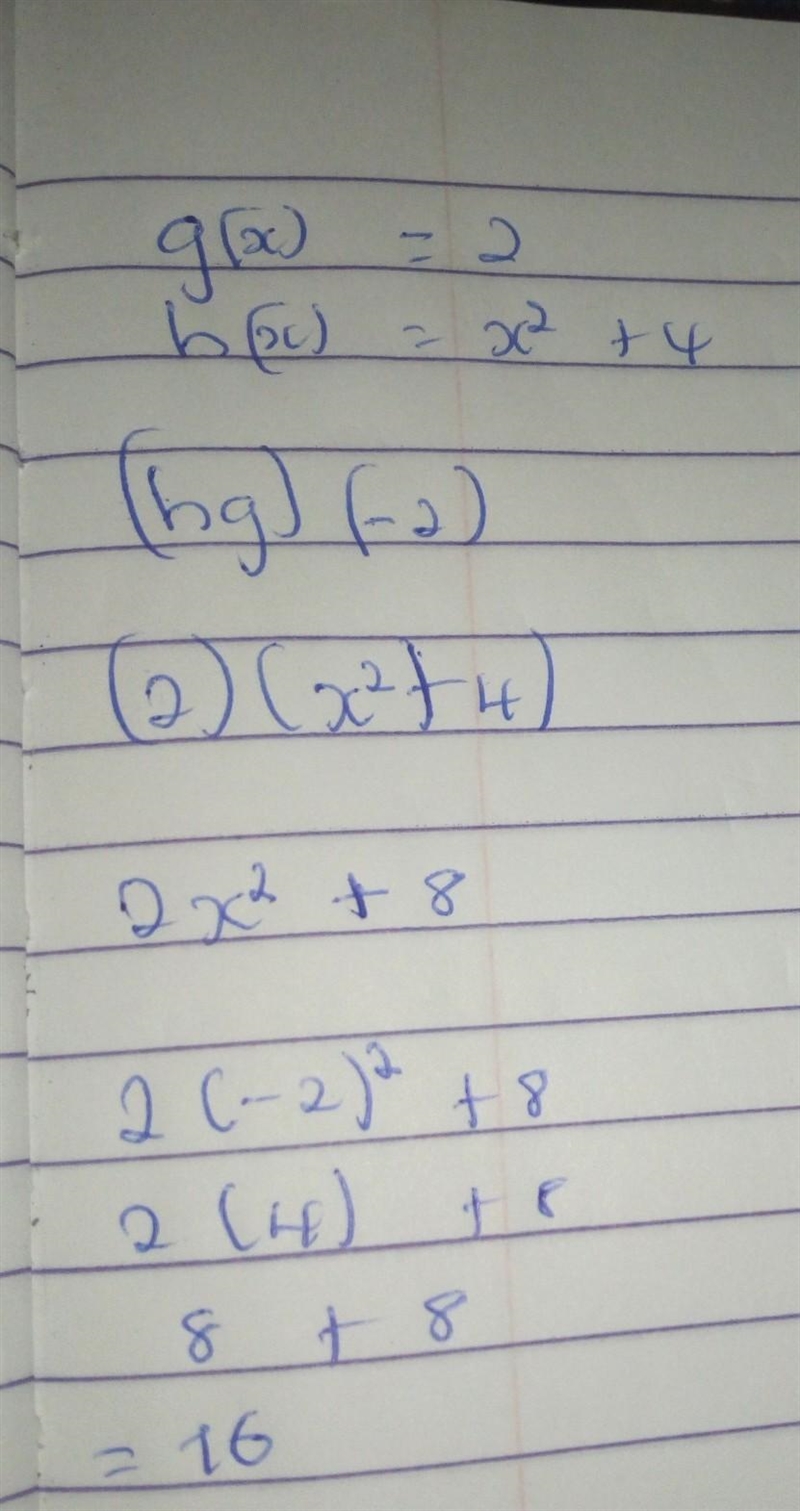 g(x) = 2
h(x) = x² + 4
(hg) (-2)
(2) (x² + 4)
2x² + 8
2 (-2)² + 8
2 (4) + 8
8 + 8
= 16